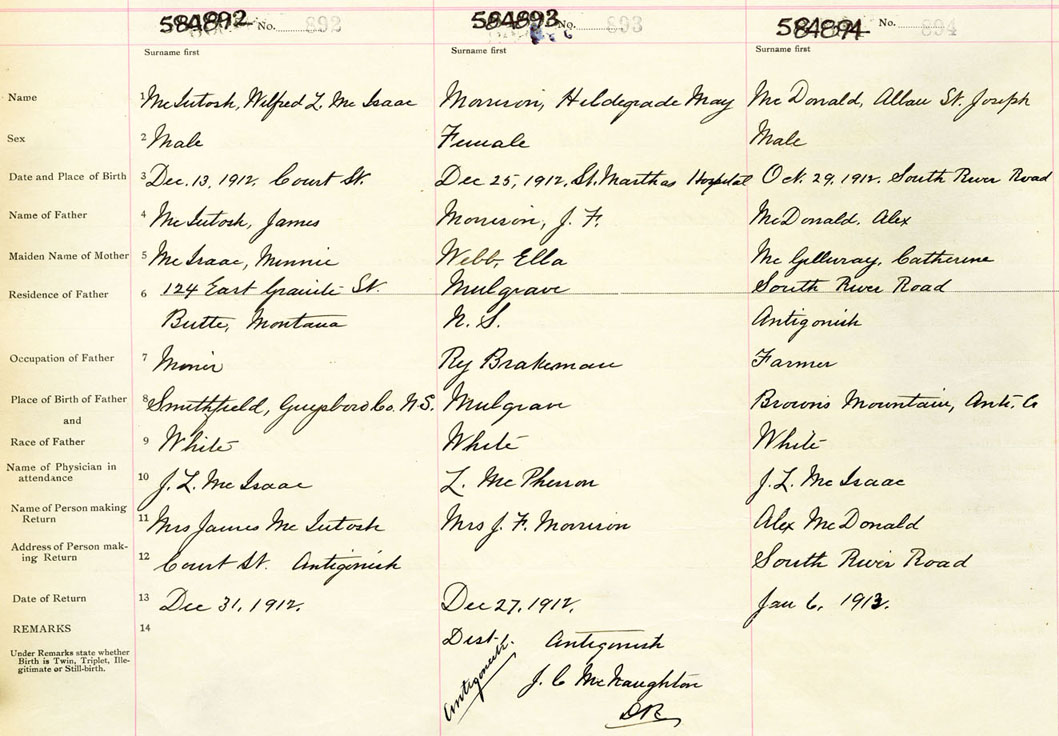 584892 No. 892 584893 No. 893 584894 No. 894
Surname first Surname first Surname first
Name 1 McIntosh, Wilfred L. McIsaac Morrison, Hildegrade May McDonald, Allan St. Joseph
Sex 2 Male Female Male
Date and Place of Birth 3 Dec. 13, 1912. Court St. Dec 25, 1912, St. Marthas Hospital Oct. 29, 1912. South River Road
Name of Father 4 McIntosh, James Morrison, J. F. McDonald, Alex
Maiden Name of Mother 5 McIsaac, Minnie Webb, Ella McGillivray, Catherine
Residence of Father 6 124 East Granite St. Mulgrave South River Road
Butte, Montana N. S. Antigonish
Occupation of Father 7 Minir Ry Brakeman Farmer
Place of Birth of Father 8 Smithfield, Guysboro Co. N.S. Mulgrave Browns Mountain, Anti. Co
and
Race of Father 9 White White White
Name of Physician in
attendance 10 J. L. McIsaac L. McPherson J. L. McIsaac
Name of Person making
Return 11 Mrs James McIntosh Mrs J. F. Morrison Alex McDonald
Address of Person mak-
ing Return 12 Court St. Antigonish South River Road
Date of Return 13 Dec 31, 1912. Dec 27, 1912. Jan 6, 1913.
REMARKS 14 Dist. Antigonish
Under Remarks state whether
Birth is Twin, Triplet, Ille-
gitimate or Still-birth.
Antigonish J. C. McNaughton
DR